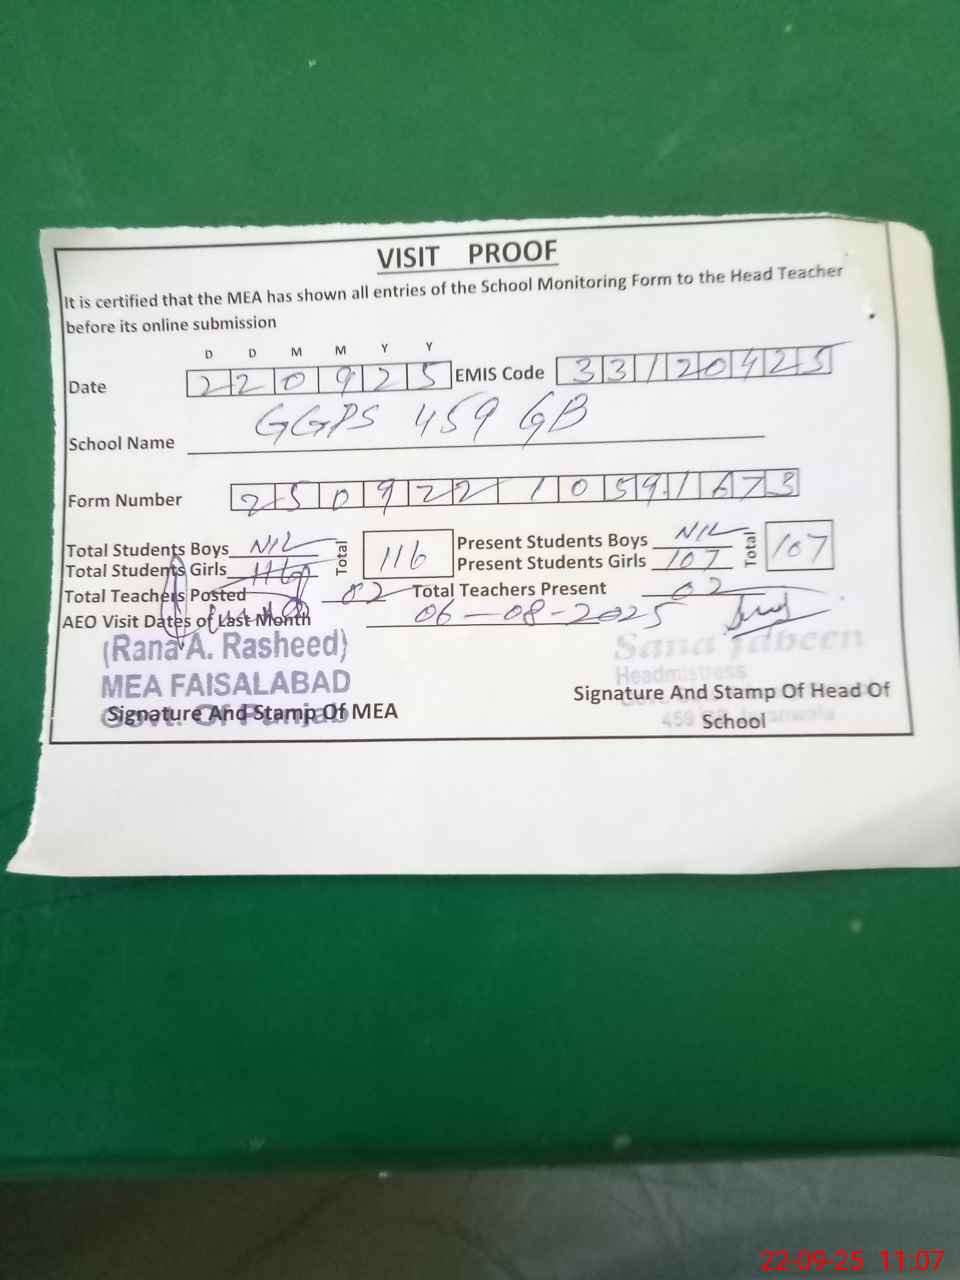 VISIT PROOF
It is certified that the MEA has shown all entries of the School Monitoring Form to the Head Teacher
before its online submission
D D M M Y Y
Date 220925 EMIS Code 33120425
School Name GGPS 459 GB
Form Number 25092210591673
Total Students Boys NIL Total 116 Present Students Boys NIL Total 107
Total Students Girls 116 Present Students Girls 107
Total Teachers Posted 02 Total Teachers Present 02
AEO Visit Dates of Last Month 06-08-2025
(Rana A. Rasheed) Sana Jabeen
MEA FAISALABAD Headmistress
Govt. Of Punjab
Signature And Stamp Of MEA Signature And Stamp Of Head Of
School
459
22-09-25 11:07